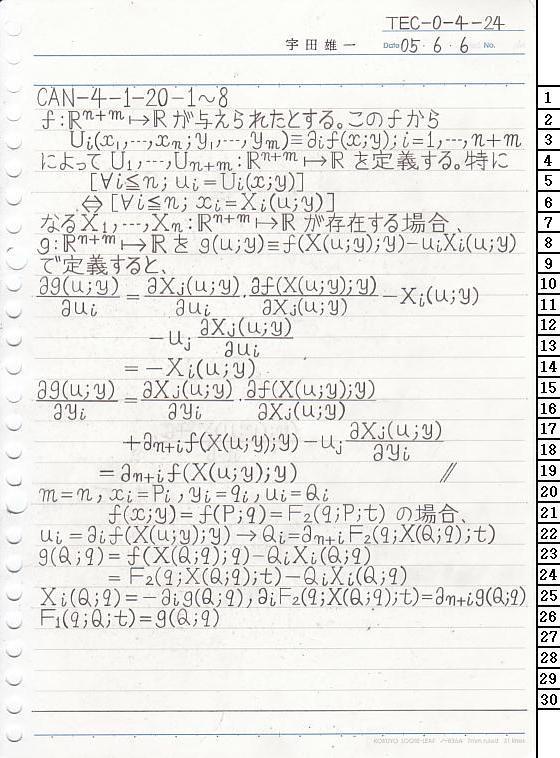 TEC-0-4-24
宇田雄一 Date 05・6・6 No.
CAN-4-1-20-1～8
f:ℝⁿ⁺ᵐ↦ℝ が与えられたとする。このfから
Uᵢ(x₁,…,xₙ;y₁,…,yₘ)≡∂ᵢf(x;y);i=1,…,n+m
によって U₁,…,Uₙ₊ₘ:ℝⁿ⁺ᵐ↦ℝ を定義する。特に
[∀i≦n; uᵢ=Uᵢ(x;y)]
⇔[∀i≦n; xᵢ=Xᵢ(u;y)]
なるX₁,…,Xₙ:ℝⁿ⁺ᵐ↦ℝ が存在する場合、
g:ℝⁿ⁺ᵐ↦ℝ を g(u;y)≡f(X(u;y);y)−uᵢXᵢ(u;y)
で定義すると、
∂g(u;y)/∂uᵢ = ∂Xⱼ(u;y)/∂uᵢ · ∂f(X(u;y);y)/∂Xⱼ(u;y) − Xᵢ(u;y)
−uⱼ ∂Xⱼ(u;y)/∂uᵢ
= −Xᵢ(u;y)
∂g(u;y)/∂yᵢ = ∂Xⱼ(u;y)/∂yᵢ · ∂f(X(u;y);y)/∂Xⱼ(u;y)
+∂ₙ₊ᵢf(X(u;y);y)−uⱼ ∂Xⱼ(u;y)/∂yᵢ
=∂ₙ₊ᵢf(X(u;y);y) //
m=n, xᵢ=Pᵢ, yᵢ=qᵢ, uᵢ=Qᵢ
f(x;y)=f(P;q)=F₂(q;P;t) の場合、
uᵢ=∂ᵢf(X(u;y);y) → Qᵢ=∂ₙ₊ᵢF₂(q;X(Q;q);t)
g(Q;q)=f(X(Q;q);q)−QᵢXᵢ(Q;q)
=F₂(q;X(Q;q);t)−QᵢXᵢ(Q;q)
Xᵢ(Q;q)=−∂ᵢg(Q;q), ∂ᵢF₂(q;X(Q;q);t)=∂ₙ₊ᵢg(Q;q)
F₁(q;Q;t)=g(Q;q)
1
2
3
4
5
6
7
8
9
10
11
12
13
14
15
16
17
18
19
20
21
22
23
24
25
26
27
28
29
30
KOKUYO LOOSE-LEAF ノ-836A 7mm ruled 31 lines